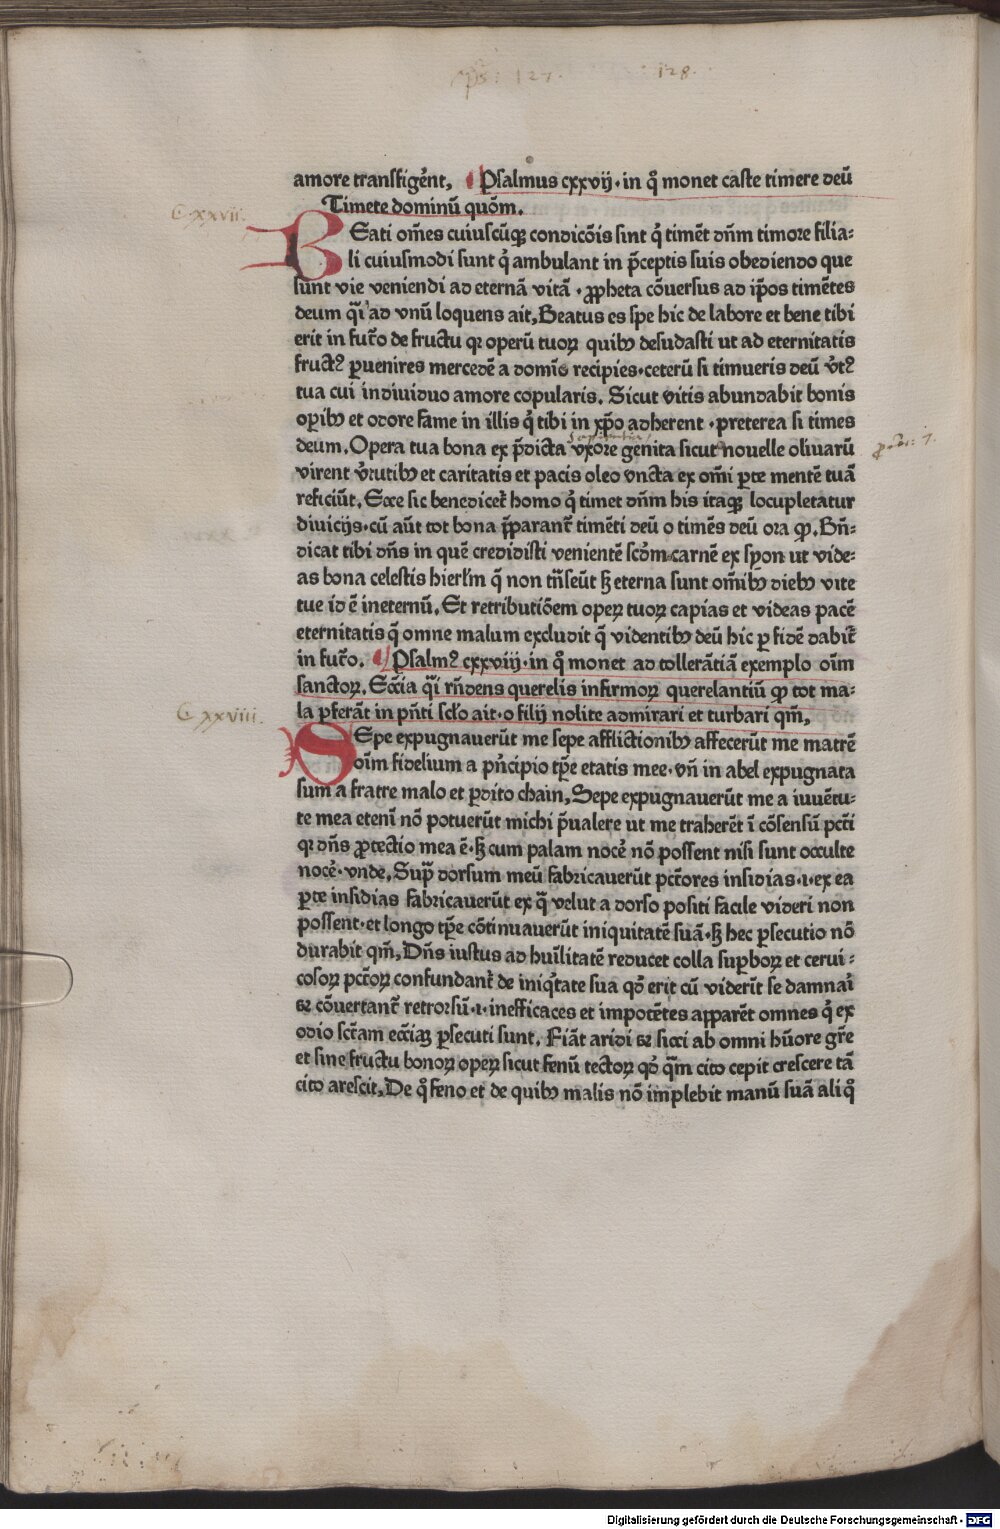 ps: 127. 128.
amore transfigēnt, Psalmus cxxvij· in q̊ monet caste timere deū
C xxvii.
Timete dominū quōm.
BEati om̄es cuiuscūqȝ condicōis sint q̇ timēt dn̄m timore filia⸗
li cuiusmodi sunt q̇ ambulant in p̄ceptis suis obediendo que
sunt vie veniendi ad eternā vitā · ꝓpheta cōuersus ad ip̄os timētes
deum q̄i ad vnū loquens ait, Beatus es spe hic de labore et bene tibi
erit in fut̄o de fructu qꝛ operū tuoꝝ quibꝰ desudasti ut ad eternitatis
fructꝰ ꝑuenires mercedē a domīo recipies·ceterū si timueris deū v̇tꝰ
tua cui indiuiduo amore copularis. Sicut vitis abundabit bonis
oꝑibꝰ et odore fame in illis q̇ tibi in xp̄o adherent ·preterea si times
sapientia
deum. Opera tua bona ex p̄dicta vxore genita sicut nouelle oliuarū
virent v̇tutibꝰ et caritatis et pacis oleo vncta ex om̄i ꝑte mentē tuā
reficiūt. Ecce sic benedicet̄ homo q̇ timet dn̄m his itaqȝ locupletatur
diuicijs·cū aūt tot bona p̄parant̄ timēti deū o timēs deū ora ꝙ. Bn̄⸗
dicat tibi dn̄s in quē credidisti venientē scdm̄ carnē ex syon ut vide⸗
as bona celestis hierlm̄ q̄ non tn̄seūt sȝ eterna sunt om̄ibꝰ diebꝰ vite
tue id ē ineternū. Et retributiōem opeꝝ tuoꝝ capias et videas pacē
eternitatis q̄ omne malum excludit q̄ videntibꝰ deū hic ꝑ fidē dabit̄
in fut̄o. Psalmꝰ cxxviij· in q̊ monet ad tollerātiā exemplo oīm
sanctoꝝ. Ecc̄ia q̄i rn̄dens querelis infirmoꝝ querelantiū ꝙ tot ma⸗
C xxviii.
la ꝑferāt in pn̄ti sclo̅ ait·o filij nolite admirari et turbari qm̄,
SEpe expugnauerūt me sepe afflictionibꝰ affecerūt me matrē
oīm fidelium a pn̄cipio tp̄e etatis mee·vn̄ in abel expugnata
sum a fratre malo et ꝑdito chain, Sepe expugnauerūt me a iuuētu⸗
te mea etenī nō potuerūt michi p̄ualere ut me traherēt ī cōsensū pcc̄ti
qꝛ dn̄s ꝓtectio mea ē·sȝ cum palam noceꝛ̄ nō possent nisi sunt occulte
noceꝛ̄·vnde. Supꝛ̄ dorsum meū fabricauerūt pctōres insidias·i·ex ea
ꝑte insidias fabricauerūt ex q̄ velut a dorso positi facile videri non
possent·et longo tp̄e cōtinuauerūt iniquitatē suā·sȝ hec ꝑsecutio nō
durabit qm̄, Dn̄s iustus ad huīlitatē reducet colla suꝑboꝝ et cerui⸗
cosoꝝ pctōꝝ confundant̄ de iniq̇tate sua qd̄ erit cū viderīt se damnari
ꝛ cōuertant̄ retrorsū·i·inefficaces et impotētes apparēt omnes q̇ ex
odio sctam̄ ecc̄iaȝ ꝑsecuti sunt. Fiāt aridi ꝛ sicci ab omni hūore grē
et sine fructu bonoꝝ opeꝝ sicut fenū tectoꝝ qd̄ q̄m cito cepit crescere tā
cito arescit, De q̊ feno et de quibꝰ malis nō implebit manū suā aliq̊